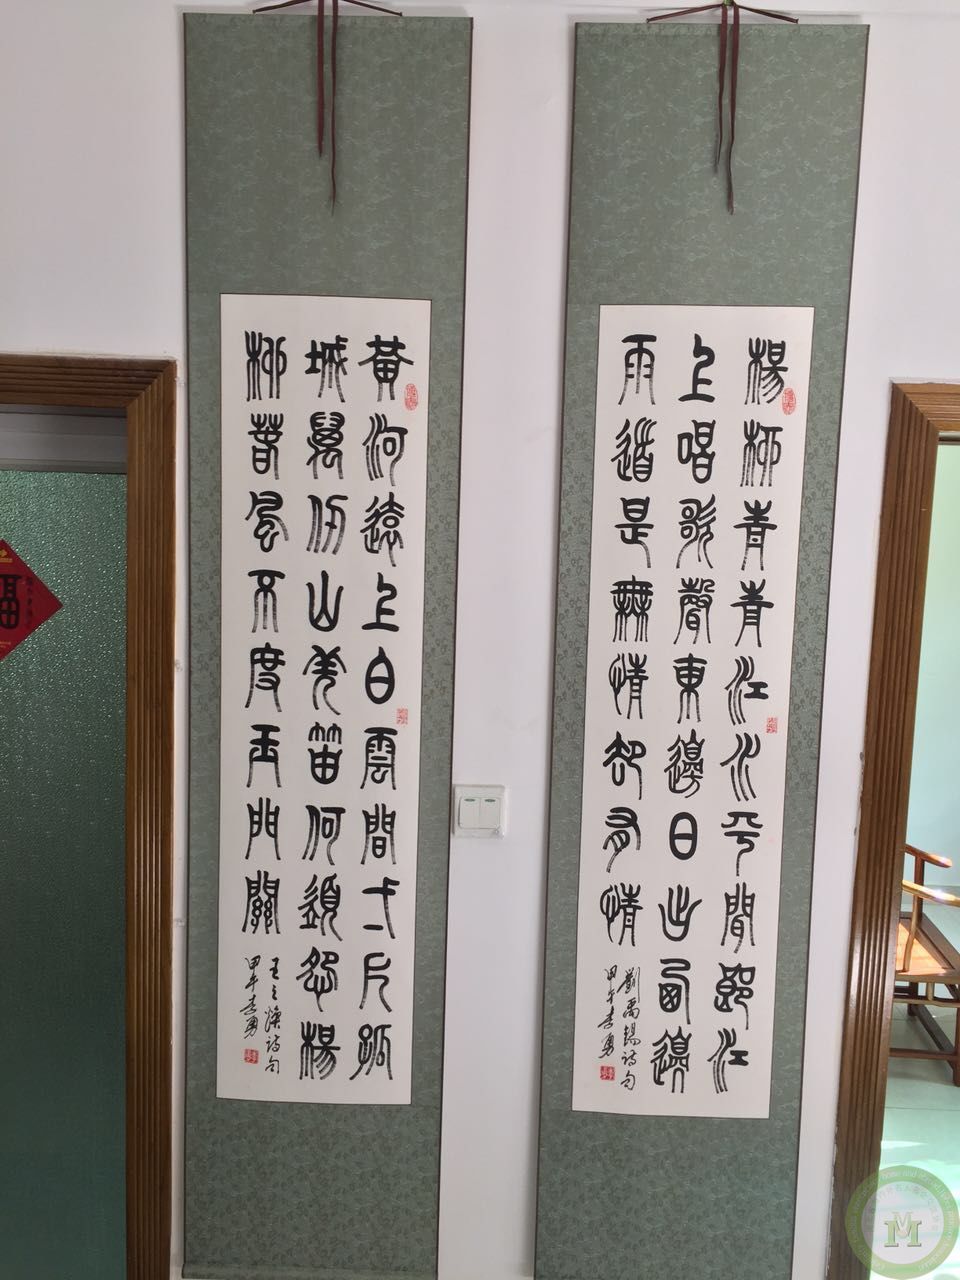 楊柳青青江水平聞郎江
上唱歌聲東邊日出西邊
雨道是無情却有情
劉禹錫詩句
甲午李勇
黃河遠上白雲間一片孤
城萬仞山羌笛何須怨楊
柳春風不度玉門關
王之渙詩句
甲午李勇
福